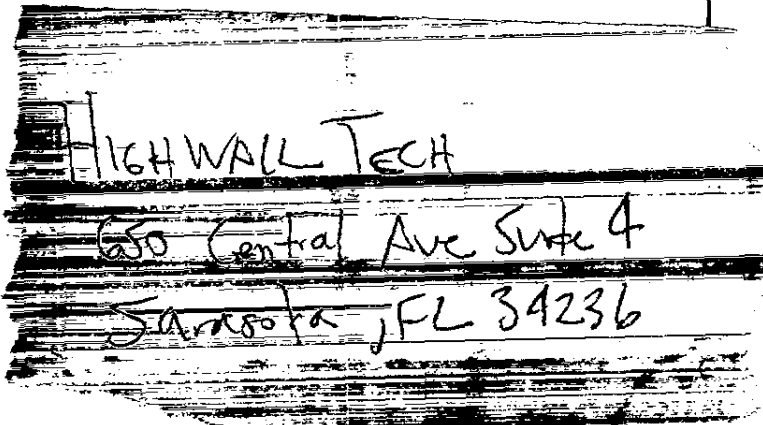 HIGHWALL TECH
650 Central Ave Suite 4
Sarasota, FL 34236